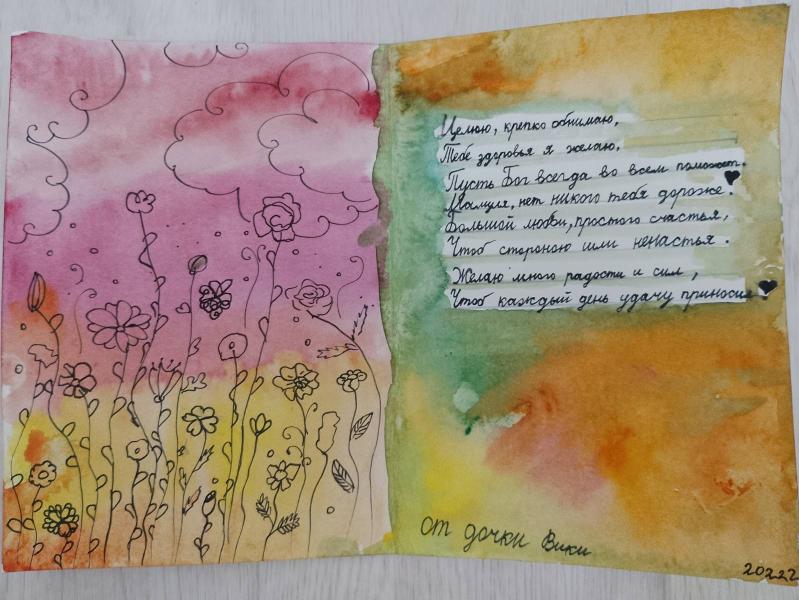 Целюю, крепко обнимаю,
Тебе здоровья я желаю.
Пусть Бог всегда во всем поможет.
Мамуля, нет никого тебя дороже.
Большой любви, простого счастья,
Чтоб стороною шли ненастья.
Желаю много радости и сил,
Чтоб каждый день удачу приносил
от дочки Вики